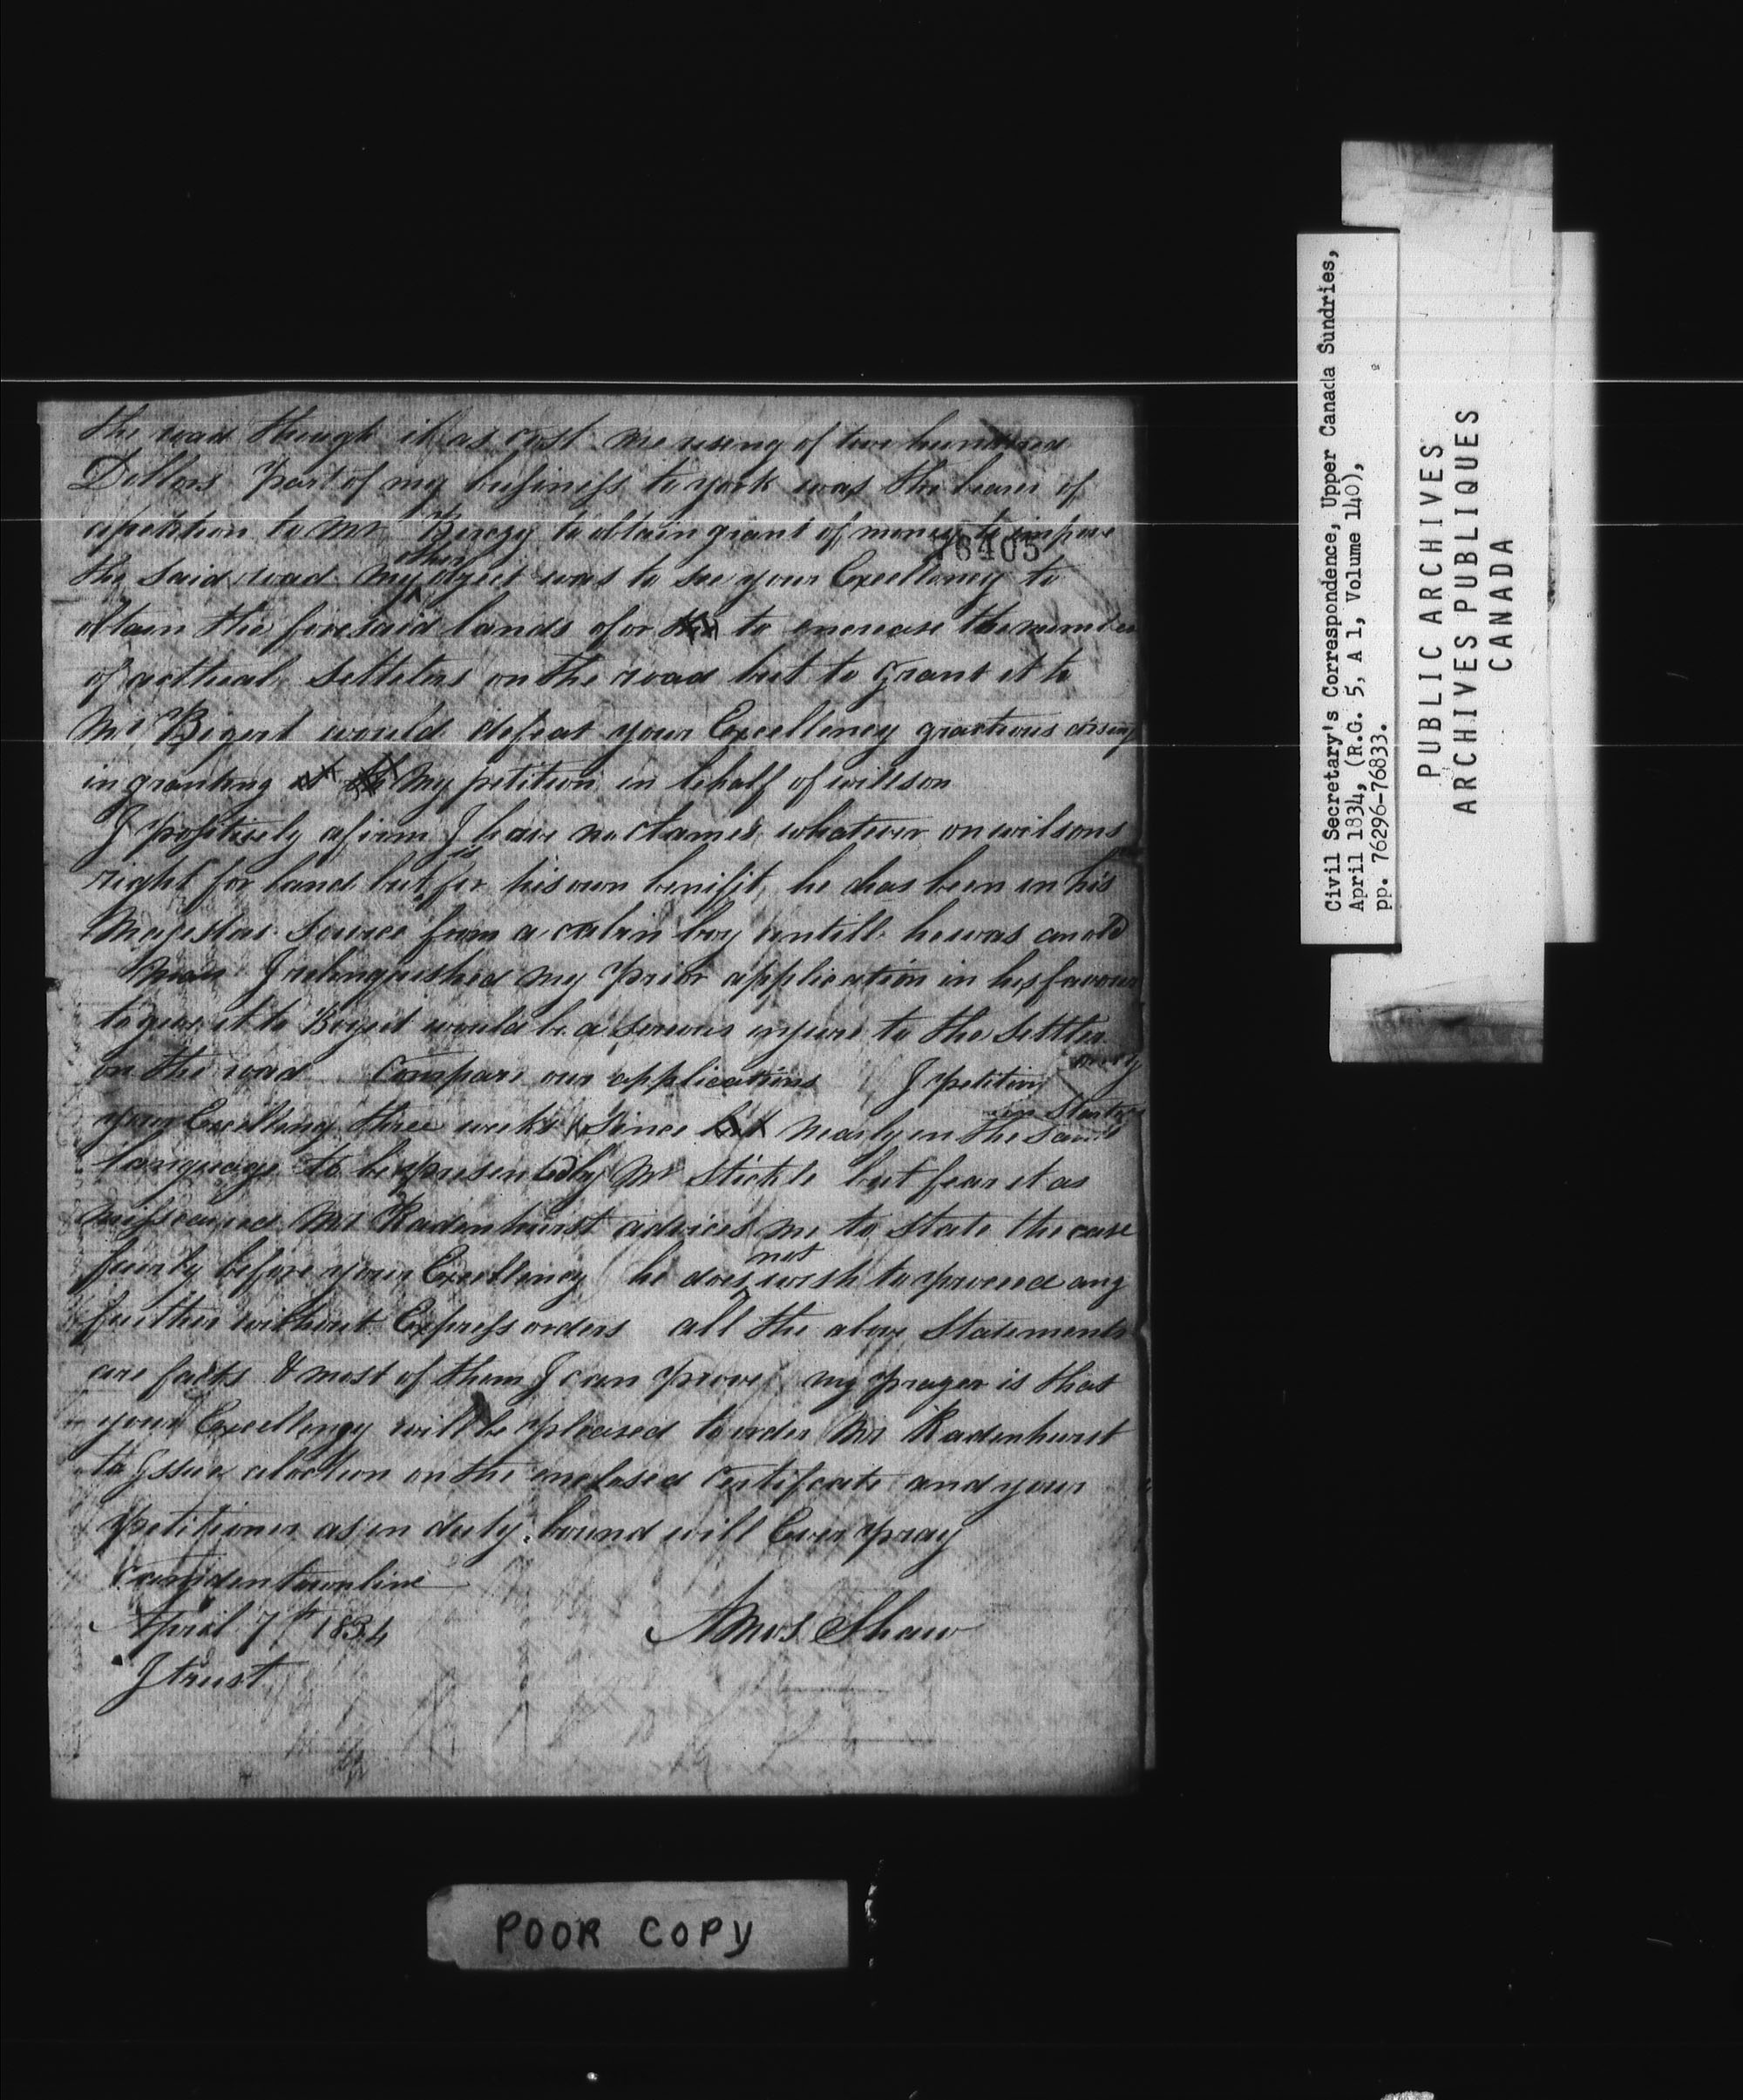 the road though it as cost me rising of two hundred
Dollers Part of my business to york was the bearer of
apetition to Mr Berczy to obtain grant of money to impove
76405
the Said road my other object was to see your Excellency to
obtain the foresaid lands ofor to encrease the number
of acttual Settelers on the road but to grant it to
Mr Bigert would defeat your Excellency gractious
in granting my petition in behalf of willson
I positively afirm I have no clames whatever on wilsons
right for land but is for his own benifit, he has been in his
Magesties Service from a cabin boy untill he was an old
man I relinquished my prior application in his favour
to give it to Bigert would be a serious injure to the Settler
on the road Compare our applications I petition
your Excellency three weeks Since nearly in the same
language to be presented by Mr Stickle but fear it as
misscaried Mr Radenhurst advices me to State the case
fairly before your Excellency he does not wish to proceed any
further without Express orders all the above Statements
are facts & most of them I can prove my prayer is that
your Excellency will be pleased to order Mr Radenhurst
to Issue alocation on the enclosed Certifcate and your
petitioner as in duty bound will Ever pray
Camden townline
April 7th 1834
Amos Shaw
I trust
POOR COPY
Civil Secretary's Correspondence, Upper Canada Sundries,
April 1834, (R.G. 5, A 1, Volume 140),
pp. 76296-76833.
PUBLIC ARCHIVES
ARCHIVES PUBLIQUES
CANADA